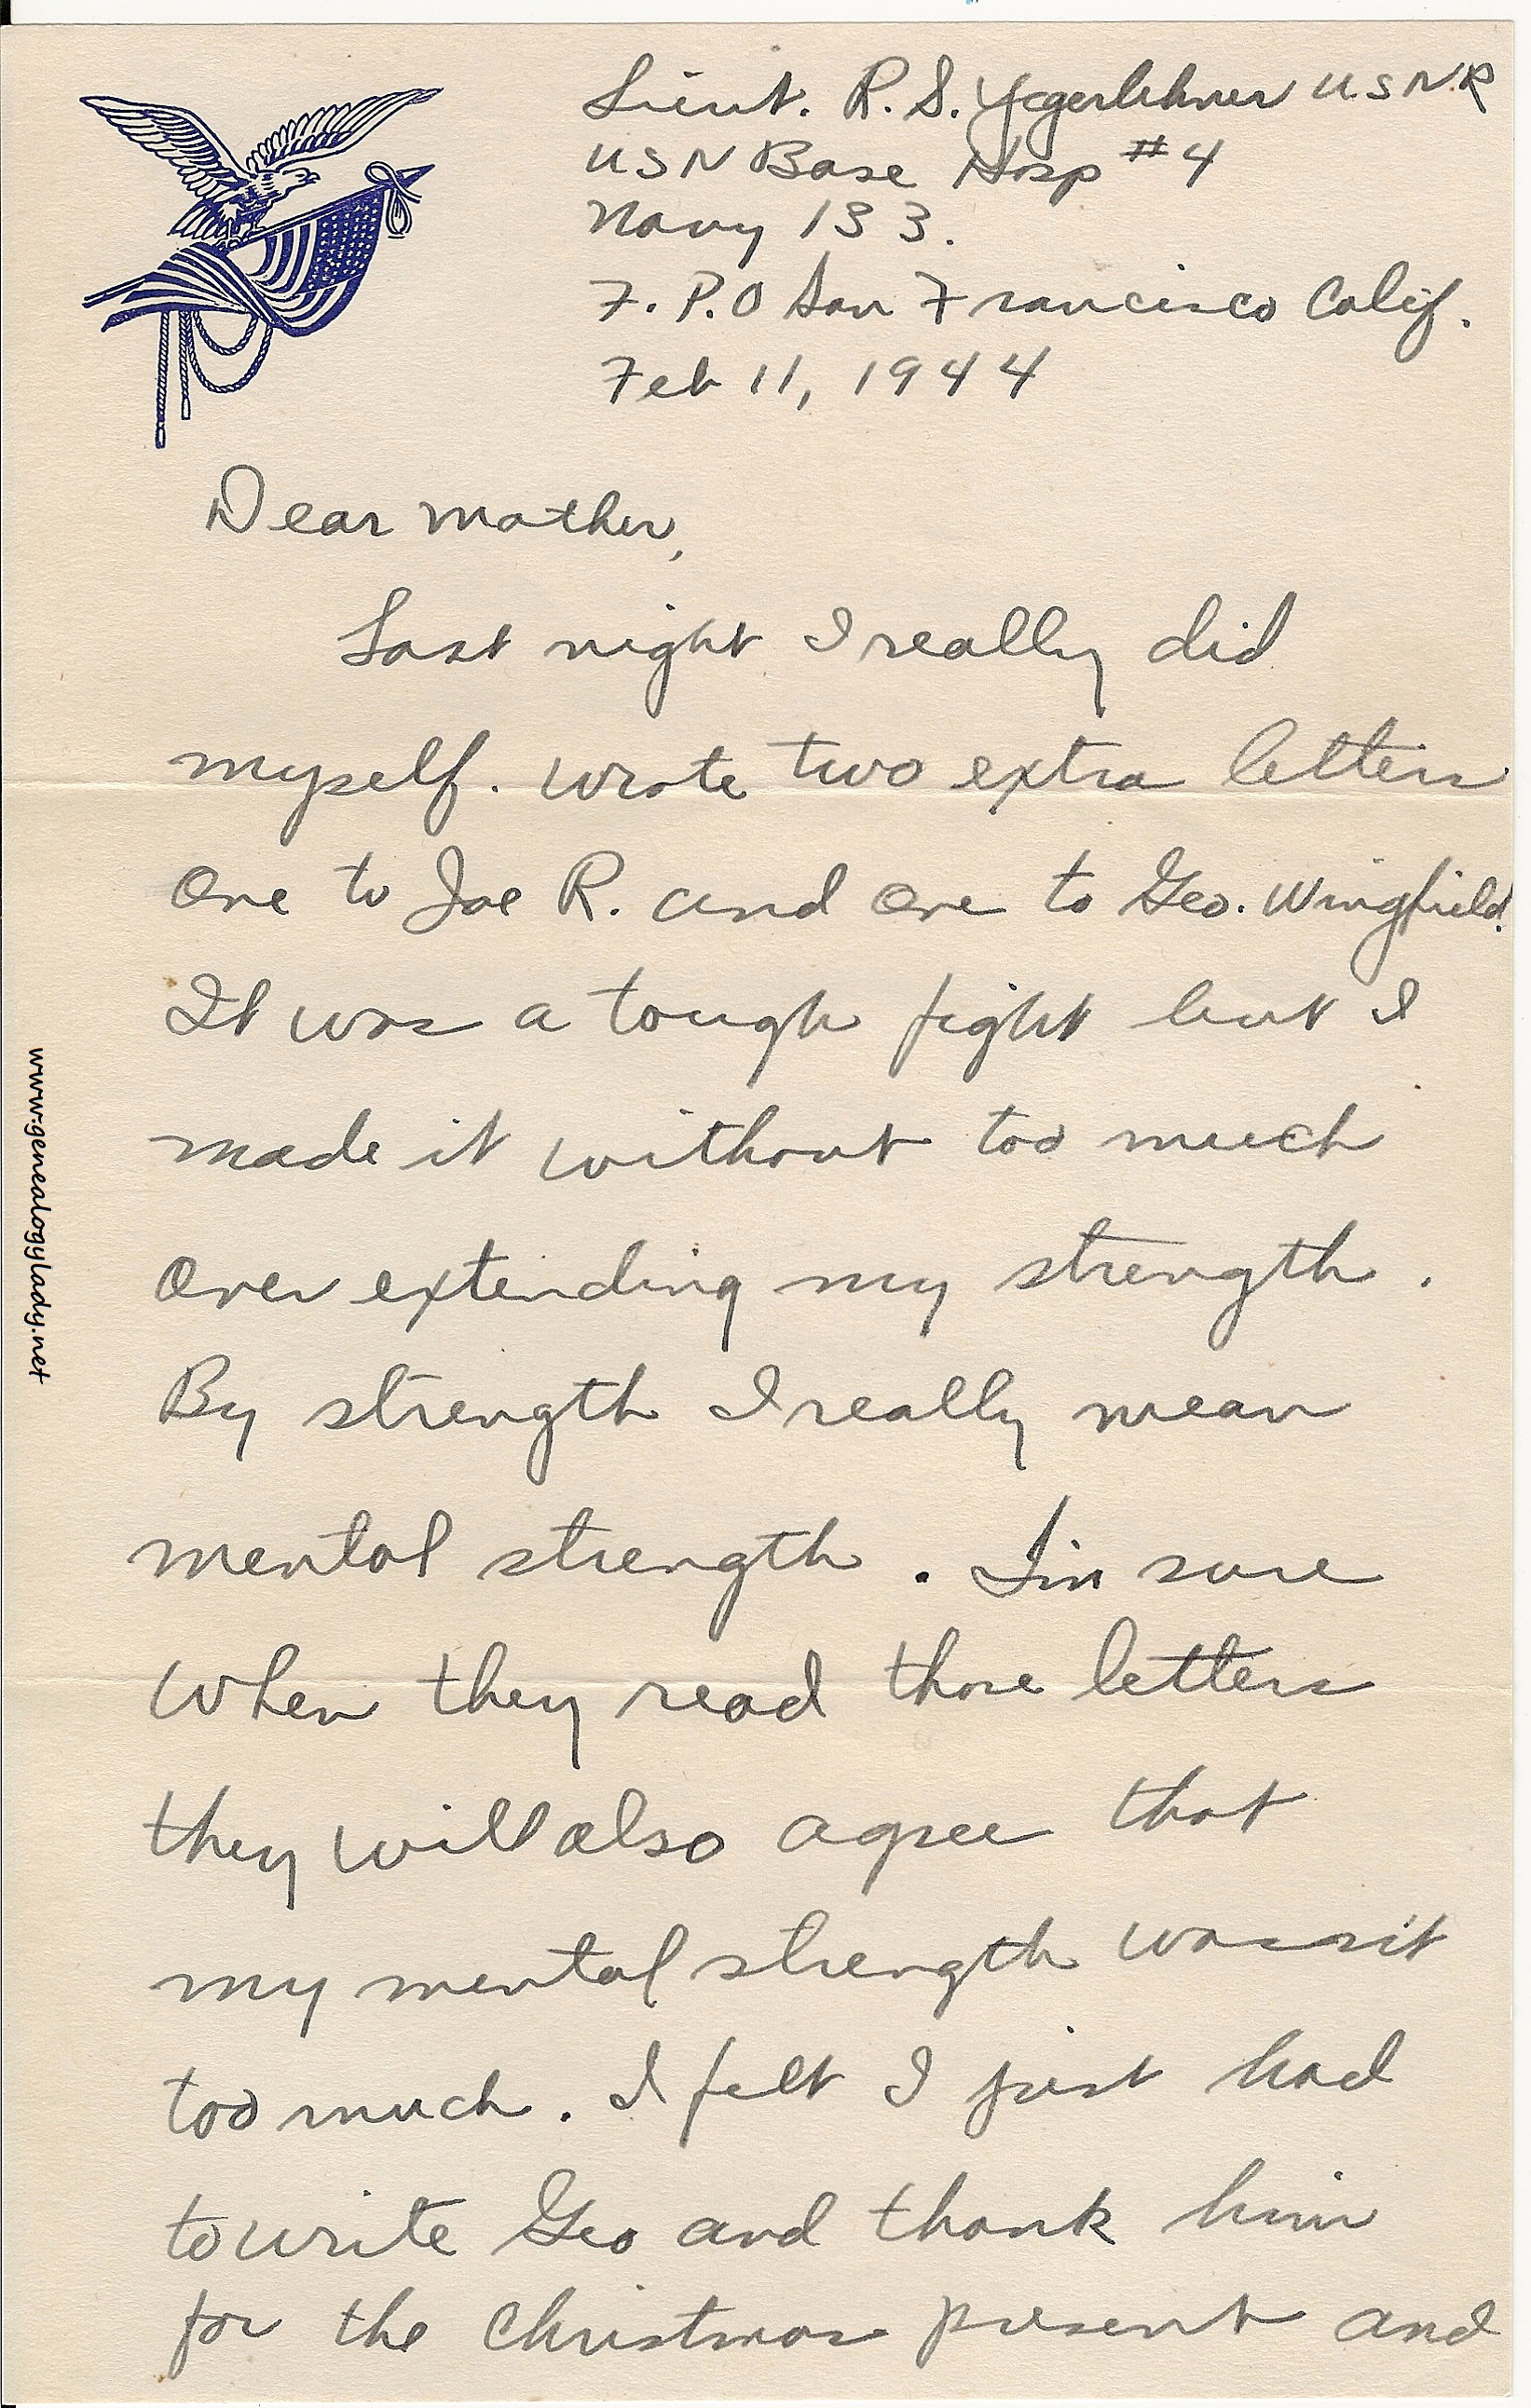 Lieut. R. S. Yegerlehner USNR
USN Base Hosp #4
Navy 133.
F. P. O San Francisco Calif.
Feb 11, 1944
Dear Mother,
Last night I really did
myself. Wrote two extra letters
one to Joe R. and one to Geo. Wingfield.
It was a tough fight but I
made it without too much
over extending my strength.
By strength I really mean
mental strength. I'm sure
when they read those letters
they will also agree that
my mental strength wasn't
too much. I felt I just had
to write Geo and thank him
for the Christmas present and
www.genealogylady.net